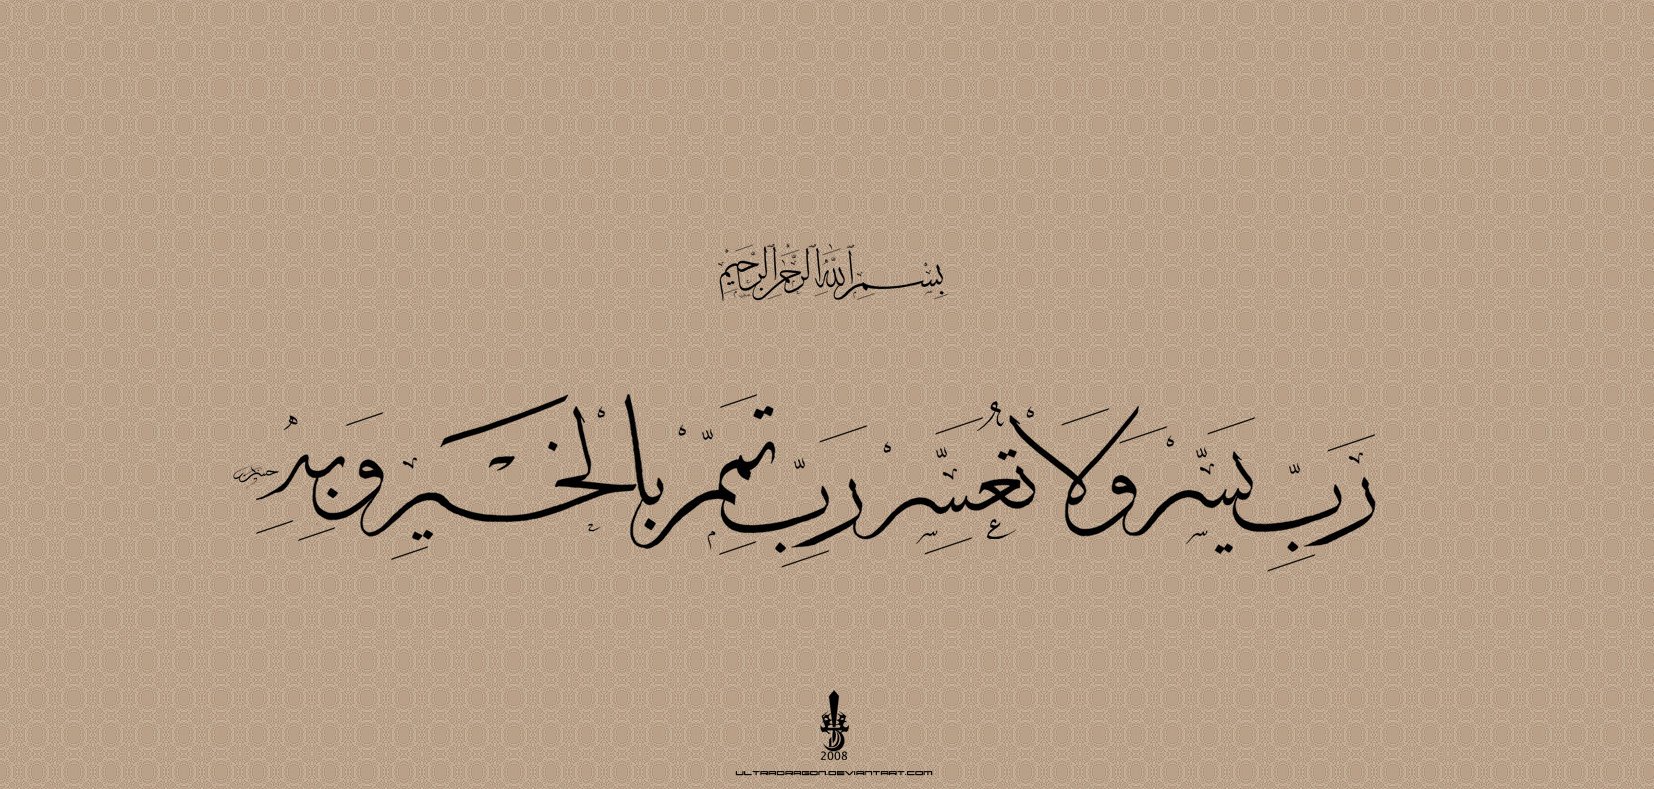 بِسْمِ اللهِ الرَّحْمٰنِ الرَّحِيمِ
رَبِّ يَسِّرْ وَلَا تُعَسِّرْ رَبِّ تَمِّمْ بِالْخَيْرِ وَبِهِ
2008
ULTRADRAGON.DEVIANTART.COM